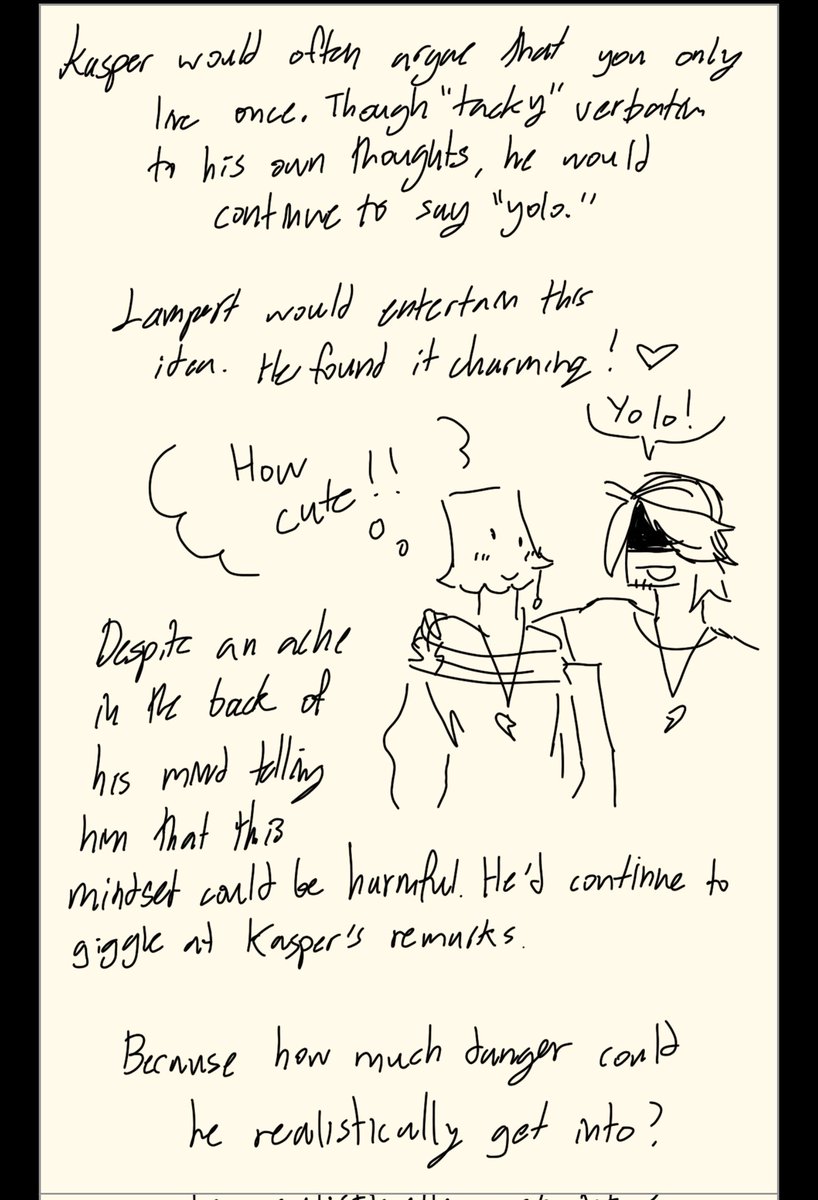 Kasper would often argue that you only
live once. Though "tacky" verbatim
to his own thoughts, he would
continue to say "yolo."
Lampert would entertain this
idea. He found it charming! ♡
Yolo!
How
cute!!
Despite an ache
in the back of
his mind telling
him that this
mindset could be harmful. He'd continue to
giggle at Kasper's remarks.
Because how much danger could
he realistically get into?